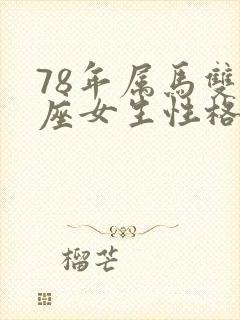 78年属馬雙
座女生性格
榴芒